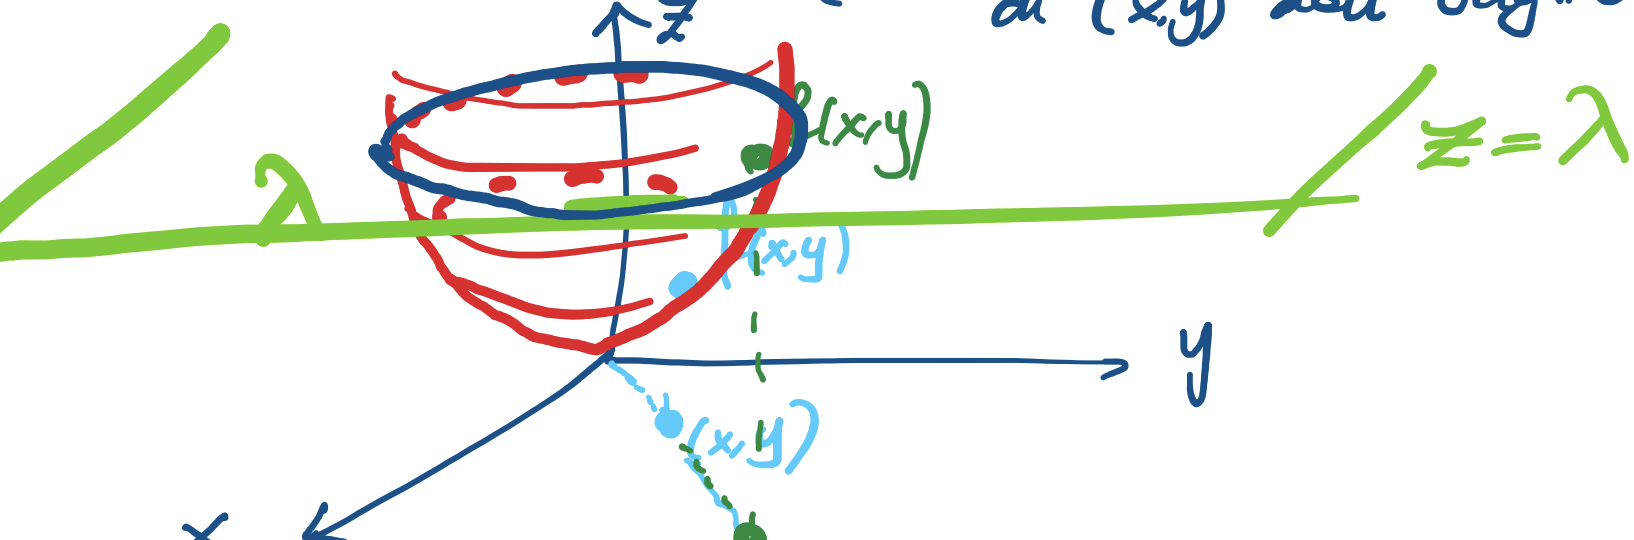 z
(x,y)
f(x,y)
z = λ
λ
f(x,y)
y
(x,y)
x